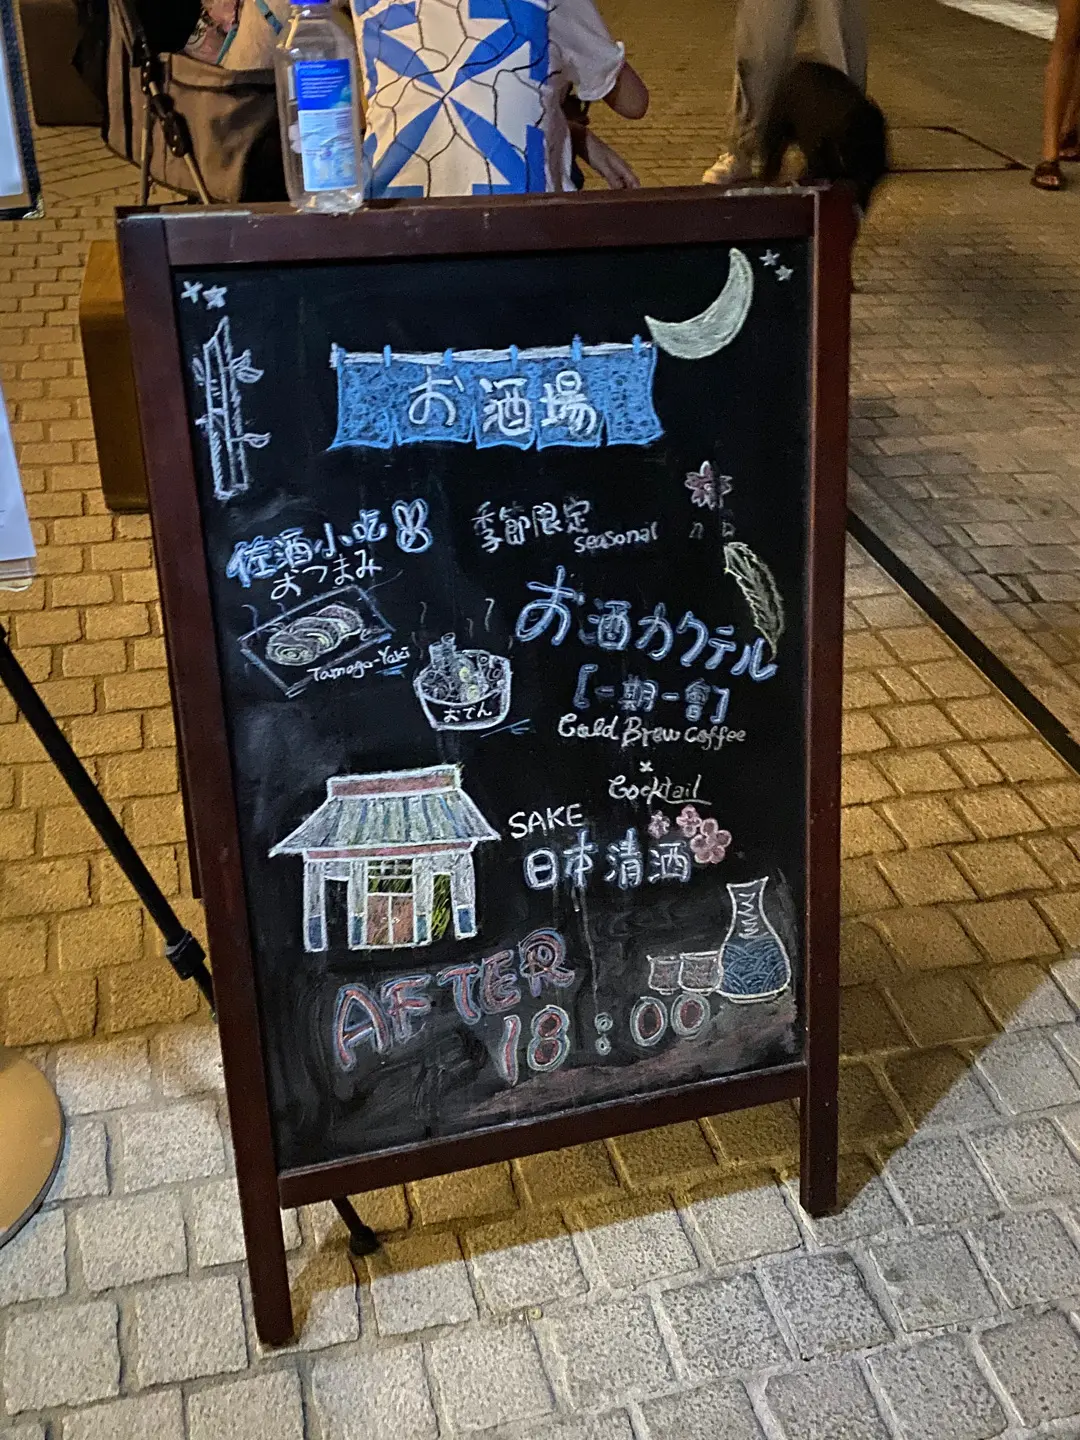 お酒場
佐酒小吃
おつまみ
季節限定
seasonal
Tamago-Yaki
おでん
お酒カクテル
[一期一會]
Cold Brew Coffee
×
Cocktail
SAKE
日本清酒
AFTER
18:00